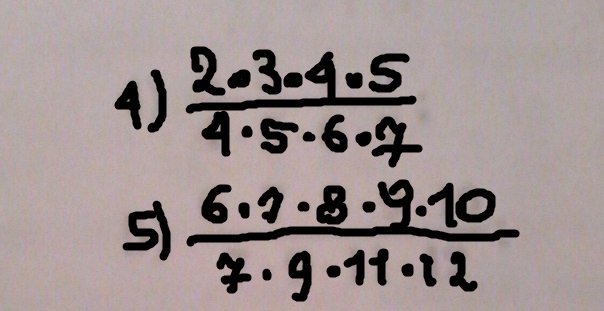 4) 2·3·4·5
4·5·6·7
5) 6·7·8·9·10
7·9·11·12